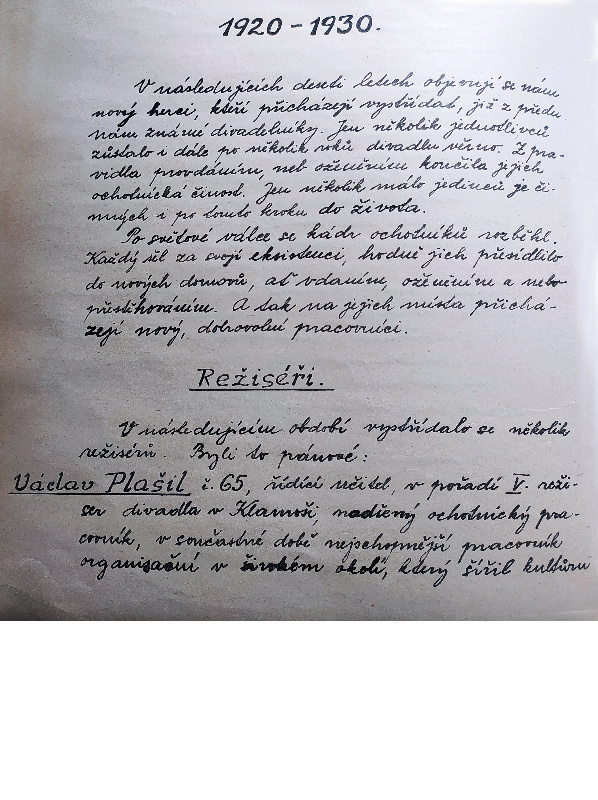 1920 - 1930.
V následujících deseti letech objevují se nám
nový herci, kteří přicházejí vystřídat, již z předu
nám známé divadelníky. Jen několik jednotlivců
zůstalo i dále po několik roků divadlu věrno. Z pra-
vidla provdáním, neb oženěním končila jejich
ochotnická činost. Jen několik málo jedinců je či-
nných i po tomto kroku do života.
Po světové válce se kádr ochotníků rozběhl.
Každý šel za svojí existenci, hodně jich přesídlilo
do nových domovů, ať vdaním, oženěním a nebo
přestěhováním. A tak na jejich místa přichá-
zejí nový, dobrovolní pracovníci.
Režiséři.
V následujícím období vystřídalo se několik
režisérů. Byli to pánové:
Václav Plašil č. 65, řídící učitel, v pořadí V. reži-
ser divadla v Klamoši, nadšený ochotnický pra-
covník, v současné době nejschopnější pracovník
organisační v širokém okolí, který šířil kulturu